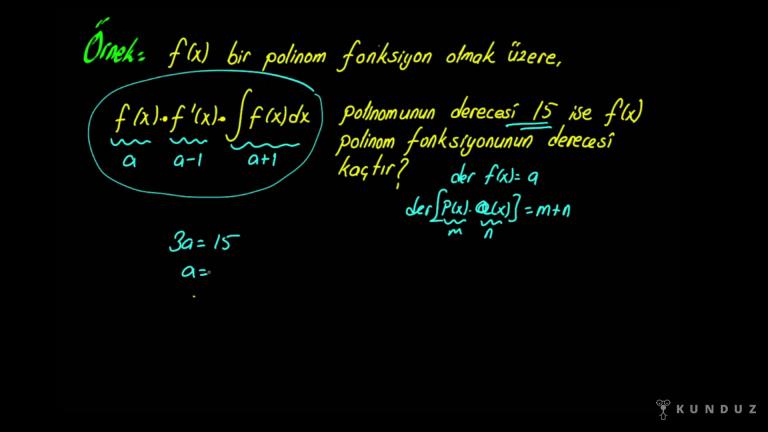 Örnek= f(x) bir polinom fonksiyon olmak üzere,
f(x)·f'(x)·∫f(x)dx polinomunun derecesi 15 ise f(x)
polinom fonksiyonunun derecesi
kaçtır?
a a-1 a+1
der f(x)= a
der[P(x)·Q(x)]=m+n
m n
3a=15
a=
KUNDUZ